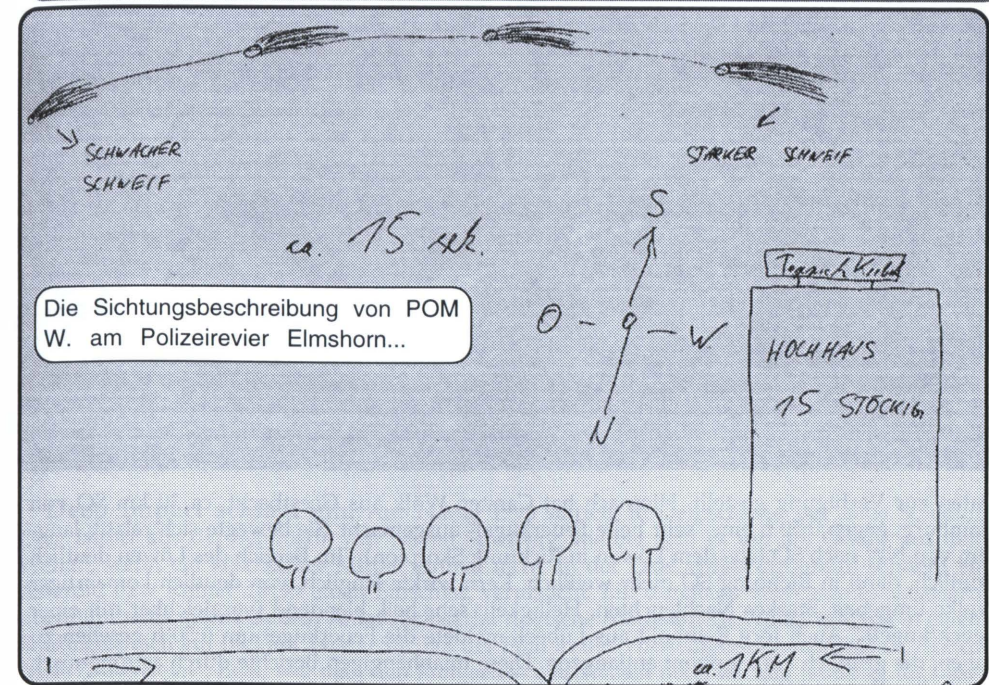 SCHWACHER
SCHWEIF
STARKER SCHWEIF
ca. 15 sek.
S
O - W
N
Die Sichtungsbeschreibung von POM
W. am Polizeirevier Elmshorn...
HOCHHAUS
15 STÖCKIG
ca. 1KM